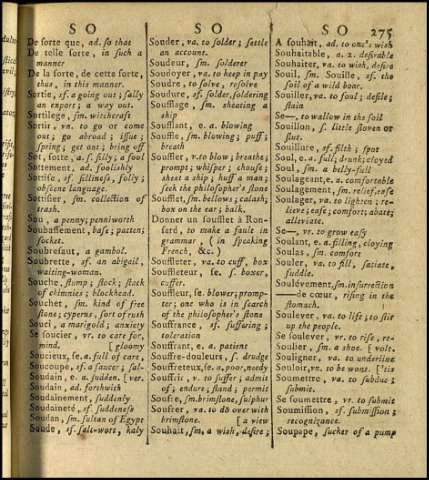 S O
S O
S O
275
De sorte que, ad. so that
De telle sorte, in such a
manner
De la sorte, de cette sorte,
thus, in this manner.
Sortie, sf. a going out; sally
an export; a way out.
Sortilege, sm. witchcraft
Sortir, va. to go or come
out; go abroad; issue;
spring; get out; bring off
Sot, sotte, a. s. silly; a fool
Sottement, ad. foolishly
Sottise, sf. silliness, folly;
obscene language.
Sottisier, sm. collection of
trash.
Sou, a penny; pennyworth
Soubassement, base; patten;
socket.
Soubresaut, a gambol.
Soubrette, sf. an abigail,
waiting-woman.
Souche, stump; stock; stack
of chimnies; blockhead.
Souchet, sm. kind of free
stone; cyperus, sort of rush
Souci, a marigold; anxiety
Se soucier, vr. to care for,
mind. [gloomy
Soucieux, se, a. full of care,
Soucoupe, sf. a saucer; sal-
Soudain, e a. sudden. [ver.
Soudain, ad. forthwith
Soudainement, suddenly
Soudaineté, sf. suddeness
Soudan, sm. sultan of Egypt
Soude, sf. salt-wort, kaly
Souder, va. to solder; settle
an account.
Soudeur, sm. solderer
Soudoyer, va. to keep in pay
Soudre, to solve, resolve
Soudure, sf. solder, soldering
Soufflage, sm. sheating a
ship
Soufflant, e a. blowing
Souffle, sm. blowing; puff;
breath
Souffler, v. to blow; breathe;
prompt; whisper; choufe;
sheet a ship; huff a man;
seek the philosopher's stone
Soufflet, sm. bellows; calash;
box on the ear; balk.
Donner un soufflet à Ron-
sard, to make a fault in
grammar (in speaking
French, &c.)
Souffleter, va. to cuff, box
Souffleteur, se. s. boxer,
cuffer.
Souffleur, se. blower; promp-
ter; one who is in search
of the philosopher's stone
Souffrance, sf. suffering;
toleration
Souffrant, e a. patient
Souffre-douleurs, s. drudge
Souffreteux, se a. poor, needy
Souffrir, v. to suffer; admit
of; endure, stand; permit
Soufre, sm. brimstone, sulphur
Soufrer, va. to do over with
brimstone. [a view
Souhait, sm. a wish, desire;
A souhait, ad. to one's wish
Souhaitable, a. 2. desirable
Souhaiter, va. to wish, desire
Souil, sm. Souille, sf. the
soil of a wild boar.
Souiller, va. to soul; defile;
stain
Se—, to wallow in the soil
Souillon, s. little sloven or
slut.
Souillure, sf. filth; spot
Soul, e a. full; drunk; cloyed
Soul, sm. a belly-full
Soulageant, e a. comfortable
Soulagement, sm. relief, ease
Soulager, va. to lighten; re-
lieve; ease; comfort; abate;
alleviate.
Se—, vr. to grow easy
Soulant, e a. filling, cloying
Soulas, sm. comfort
Souler, va. to fill, satiate,
fuddle.
Soulévement, sm. insurrection
— de cœur, rising in the
stomach.
Soulever, va. to lift; to stir
up the people.
Se soulever, vr. to rise, re-
Soulier, sm. a shoe. [volt.
Souligner, va. to underline
Souloir, vn. to be wont.
Soumettre, va. to subdue;
submit.
Se soumettre, vr. to submit
Soumission, sf. submission;
recognizance.
Soupape, sucker of a pump